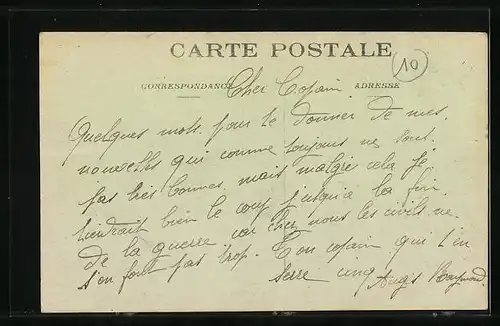 CARTE POSTALE
10
CORRESPONDANCE
ADRESSE
Cher Copain
Quelques mots pour te donner de mes
nouvelles qui comme toujours ne sont
pas très bonnes. mais malgré cela je
tiendrait bien le coup jusqu'a la fin
de la guerre car chez nous les civils ne
s'en font pas trop. Ton copain qui t'en
serre cinq
Raymond